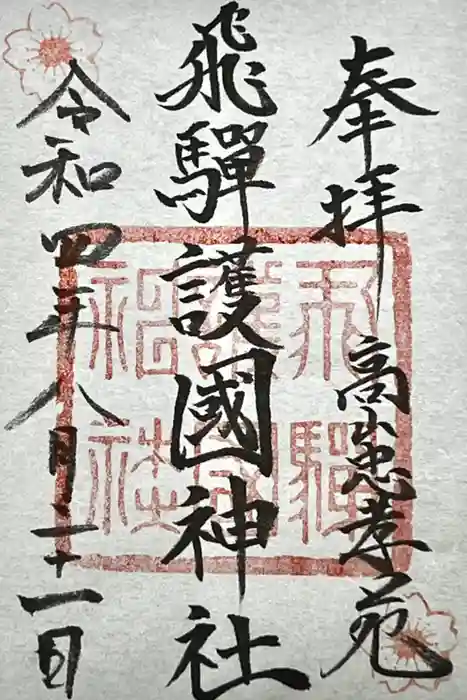 奉拝 高山忠孝苑
飛驒護國神社
令和四年八月二十一日
飛驒
護國
神社